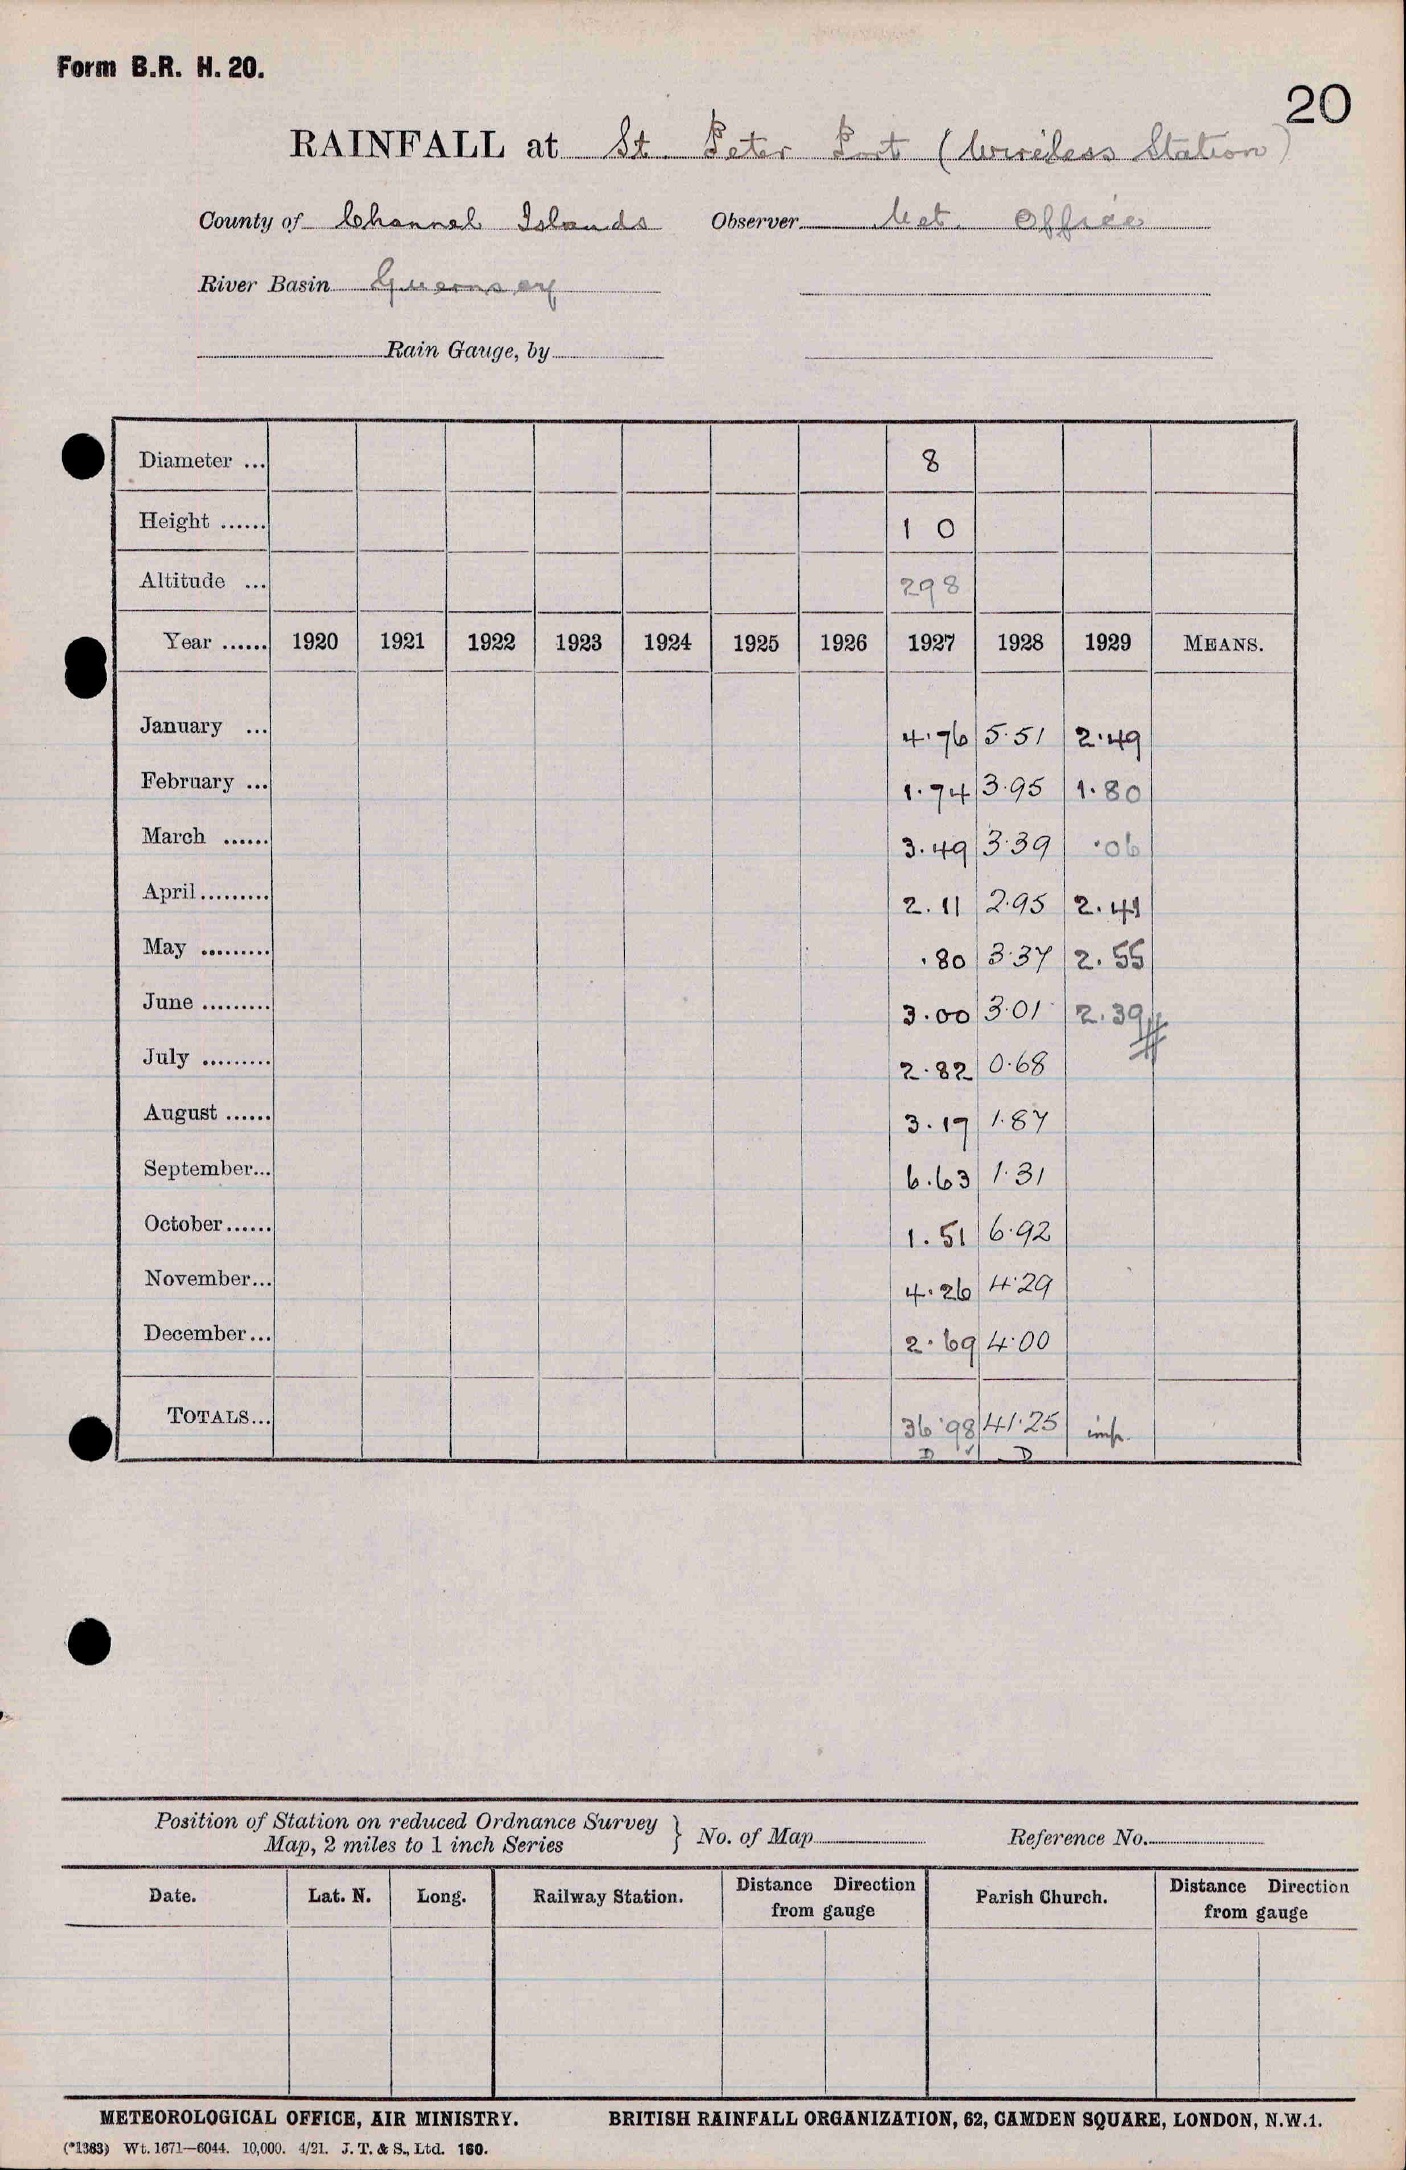 Form B.R. H. 20.
20
RAINFALL at St. Peter Port (Wireless Station)
County of Channel Islands Observer Met. Office
River Basin Guernsey
Rain Gauge, by
Diameter ... 8
Height ...... 1 0
Altitude ... 298
Year ...... 1920 1921 1922 1923 1924 1925 1926 1927 1928 1929 MEANS.
January ... 4.76 5.51 2.49
February ... 1.74 3.95 1.80
March ...... 3.49 3.39 .06
April ......... 2.11 2.95 2.41
May ......... .80 3.37 2.55
June ......... 3.00 3.01 2.39
July ......... 2.82 0.68
August ...... 3.17 1.87
September... 6.63 1.31
October...... 1.51 6.92
November... 4.26 4.29
December... 2.69 4.00
TOTALS... 36.98 41.25 imp.
D ✓ D
Position of Station on reduced Ordnance Survey
Map, 2 miles to 1 inch Series } No. of Map Reference No.
Date. Lat. N. Long. Railway Station. Distance Direction from gauge Parish Church. Distance Direction from gauge
METEOROLOGICAL OFFICE, AIR MINISTRY. BRITISH RAINFALL ORGANIZATION, 62, CAMDEN SQUARE, LONDON, N.W.1.
(*1383) Wt. 1671—6044. 10,000. 4/21. J. T. & S., Ltd. 160.